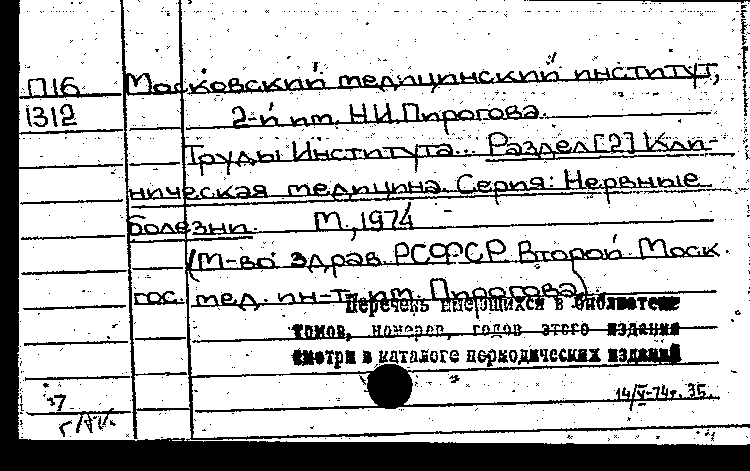 П16 Московский медицинский институт,
1312 2-й им. Н.И.Пирогова.
Труды Института... Раздел [2] Кли-
ническая медицина. Серия: Нервные
болезни. М., 1974 -
(М-во здрав. РСФСР Второй Моск.
гос. мед. ин-т им. Пирогова)
Перечень имеющихся в библиотеке
томов, номеров, годов этого издания
смотри в каталоге периодических изданий
14/V-74г. 35.